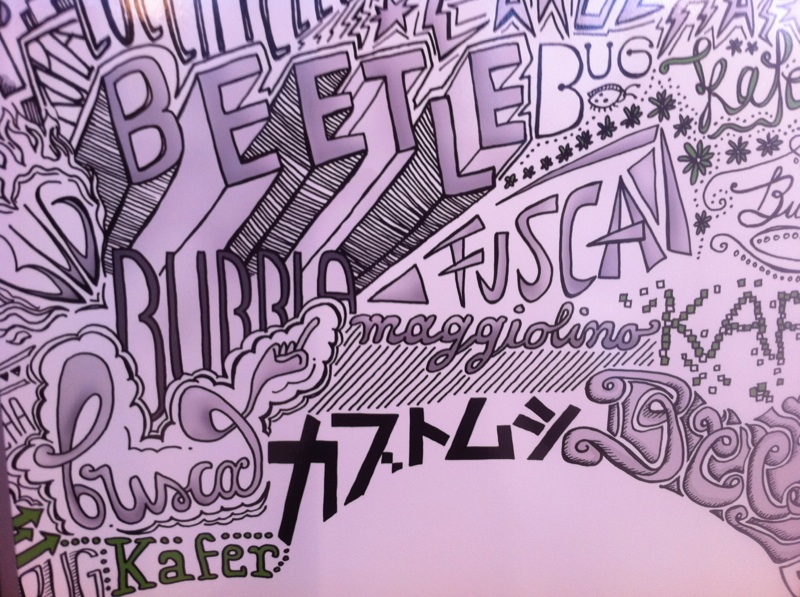 BEETLE
BUG
Kafe
FUSCA
BUBBLA
maggiolino
KÄF
fusca
カブトムシ
Bee
UG
Käfer